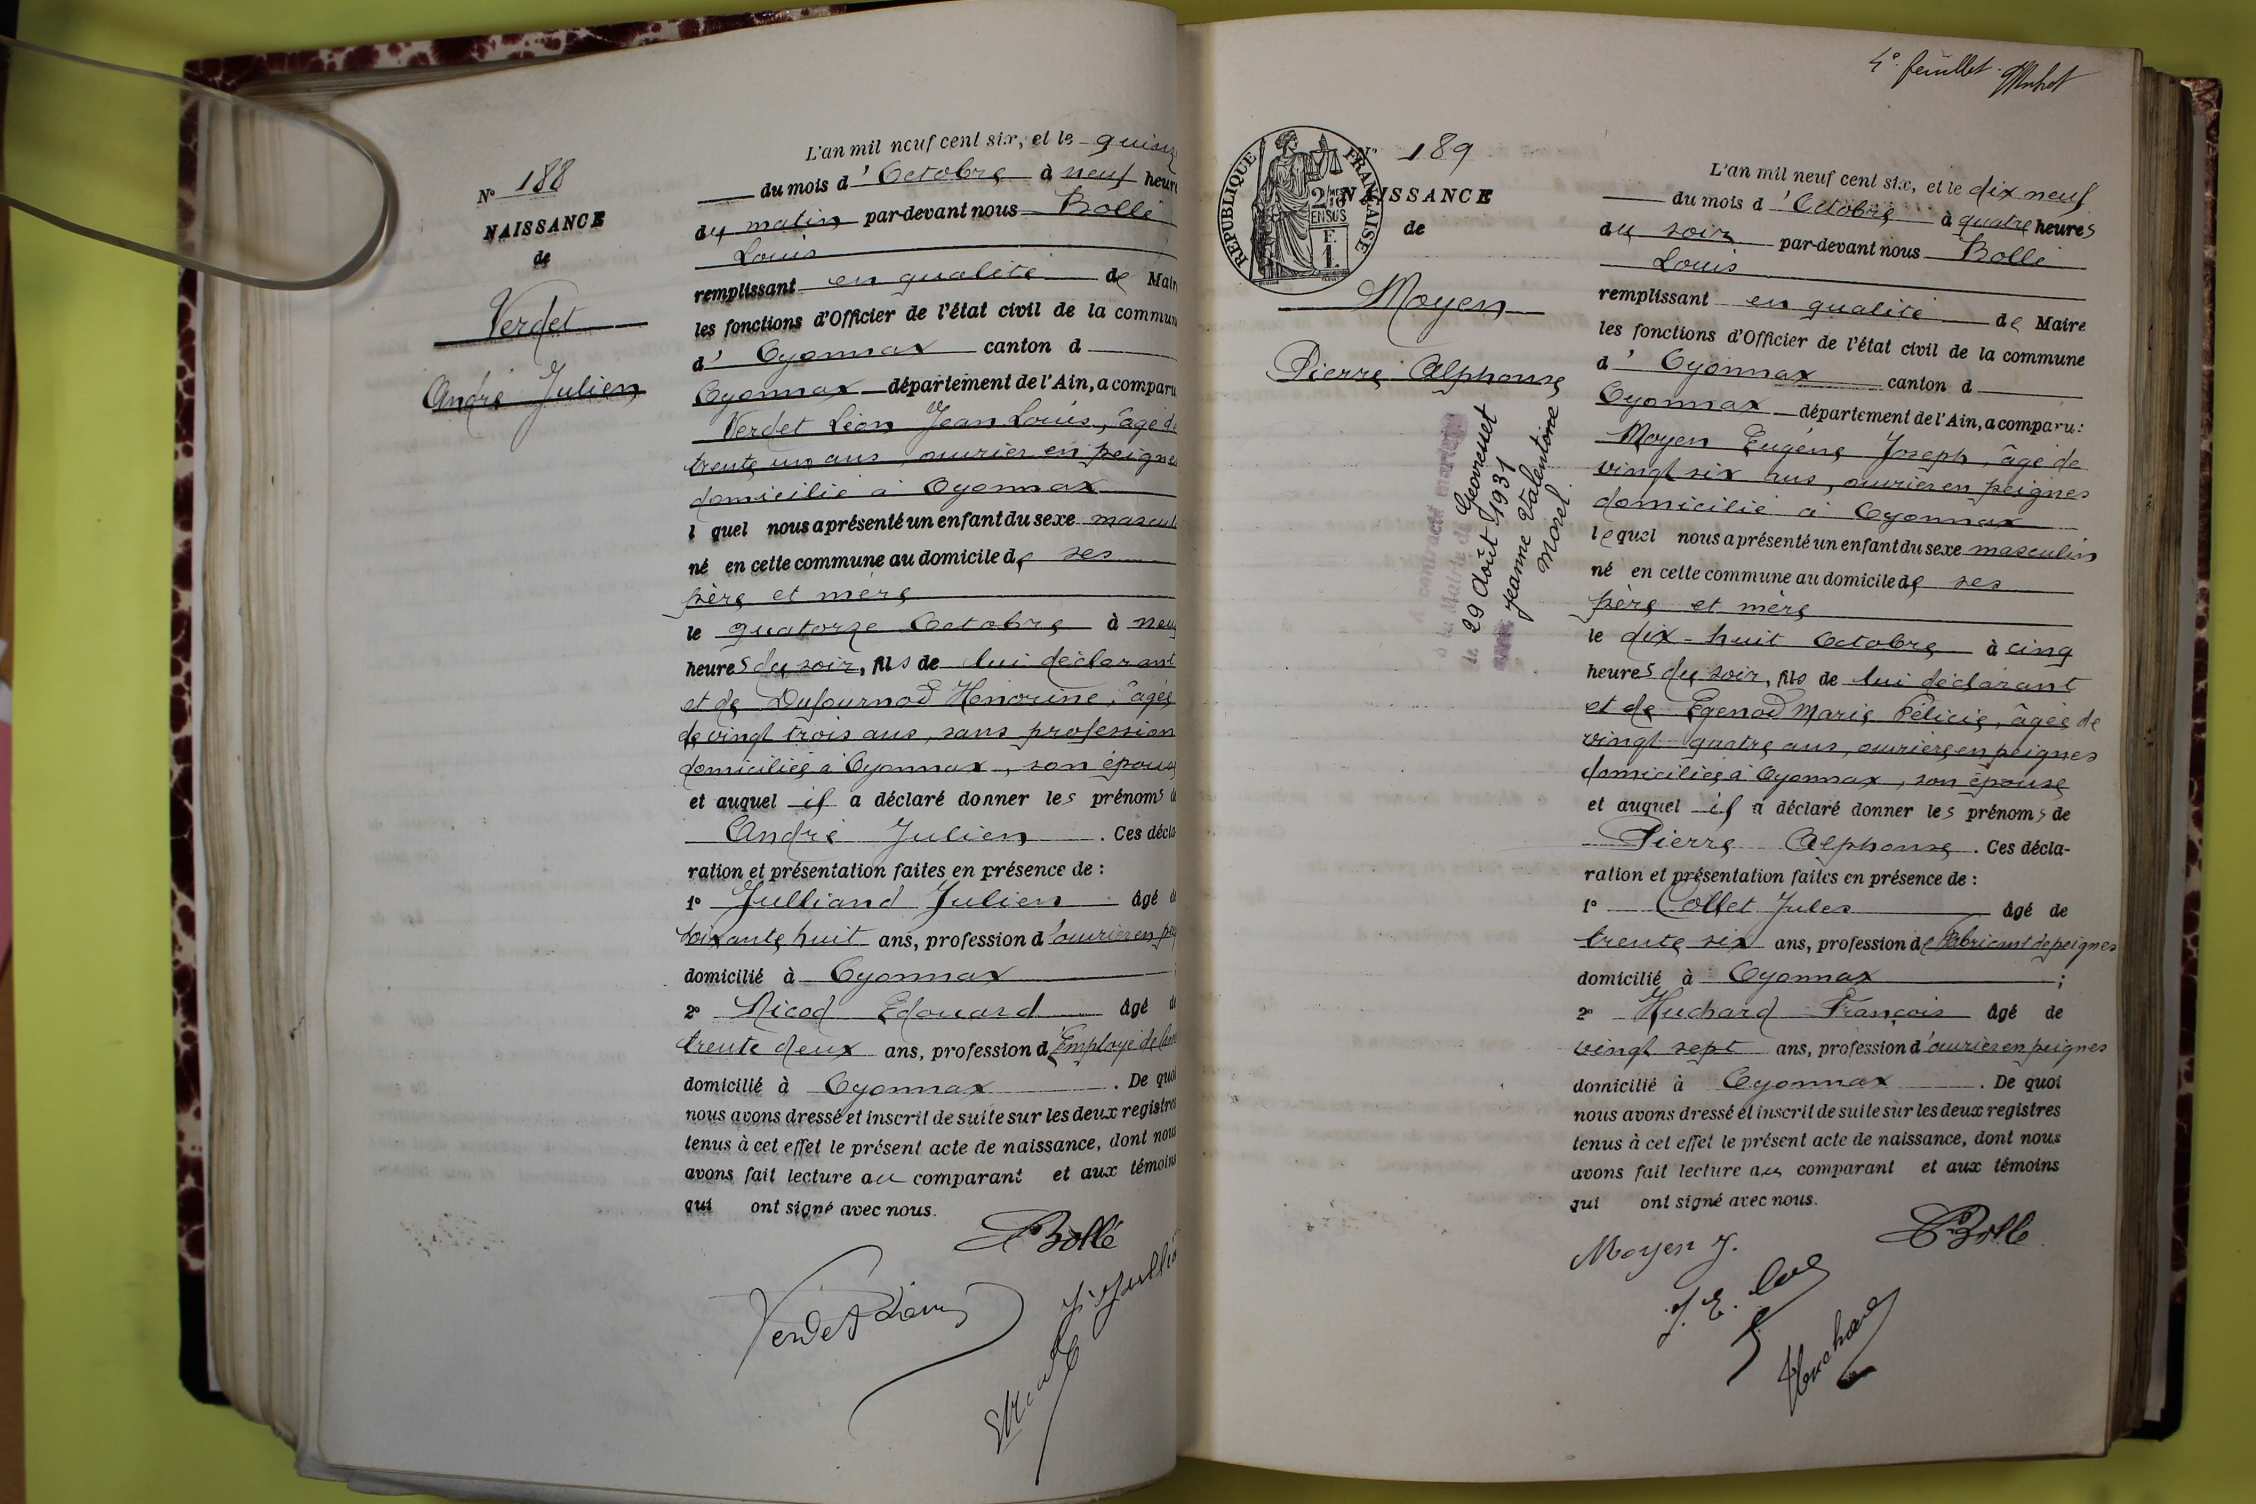 N° 188
NAISSANCE
de
Verdet
André Julien
L'an mil neuf cent six, et le quinze
du mois d'Octobre à neuf heure
du matin par-devant nous Bollé
Louis
remplissant en qualité de Mair
les fonctions d'Officier de l'état civil de la commun
d' Oyonnax canton d
Oyonnax département de l'Ain, a comparu
Verdet Léon Jean Louis, âgé de
trente un ans, ouvrier en peignes
domicilié à Oyonnax
l quel nous a présenté un enfant du sexe mascul
né en cette commune au domicile de ses
père et mère
le quatorze Octobre à neuf
heures du soir, fils de lui déclarant
et de Dufournod Honorine, âgée
de vingt trois ans, sans profession
domiciliée à Oyonnax, son épouse
et auquel il a déclaré donner les prénoms d
André Julien . Ces décla
ration et présentation faites en présence de :
1° Julliand Julien âgé d
soixante huit ans, profession d'ouvrier en pei
domicilié à Oyonnax
2° Nicod Edouard âgé de
trente deux ans, profession d'Employé de
domicilié à Oyonnax . De quoi
nous avons dressé et inscrit de suite sur les deux registres
tenus à cet effet le présent acte de naissance, dont nous
avons fait lecture au comparant et aux témoins
qui ont signé avec nous.
Bollé
Verdet Léon
4e feuillet
N° 189
NAISSANCE
de
RÉPUBLIQUE FRANÇAISE
2/10MES
EN SUS
F.
1.
Moyen
Pierre Alphonse
A contracté mariage
à la Mairie de Géovresset
le 29 Août 1931
avec Jeanne Valentine
Morel
L'an mil neuf cent six, et le dix neuf
du mois d'Octobre à quatre heures
du soir par-devant nous Bollé
Louis
remplissant en qualité de Maire
les fonctions d'Officier de l'état civil de la commune
d' Oyonnax canton d
Oyonnax département de l'Ain, a comparu :
Moyen Eugène Joseph, âgé de
vingt six ans, ouvrier en peignes
domicilié à Oyonnax
lequel nous a présenté un enfant du sexe masculin
né en cette commune au domicile de ses
père et mère
le dix-huit Octobre à cinq
heures du soir, fils de lui déclarant
et de Egenod Marie Félicie, âgée de
vingt quatre ans, ouvrière en peignes
domiciliée à Oyonnax, son épouse
et auquel il a déclaré donner les prénoms de
Pierre Alphonse . Ces décla-
ration et présentation faites en présence de :
1° Collet Jules âgé de
trente six ans, profession de fabricant de peignes
domicilié à Oyonnax ;
2° Huchard François âgé de
vingt sept ans, profession d'ouvrier en peignes
domicilié à Oyonnax . De quoi
nous avons dressé et inscrit de suite sur les deux registres
tenus à cet effet le présent acte de naissance, dont nous
avons fait lecture au comparant et aux témoins
qui ont signé avec nous.
Moyen J.
Bollé
Huchard